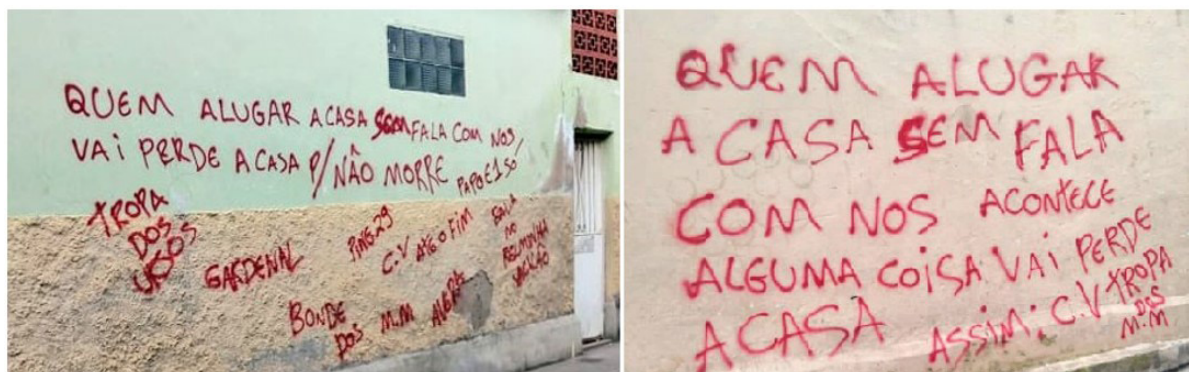 QUEM ALUGAR A CASA SEM FALA COM NOS,
VAI PERDE A CASA P/ NÃO MORRE PAPO É 1 SÓ
TROPA
DOS
GARDENAL
C.V ATÉ O FIM
BONDE
DOS
M.M
QUEM ALUGAR
A CASA SEM FALA
COM NOS ACONTECE
ALGUMA COISA VAI PERDE
A CASA ASSIM: C.V TROPA
DOS
M.M